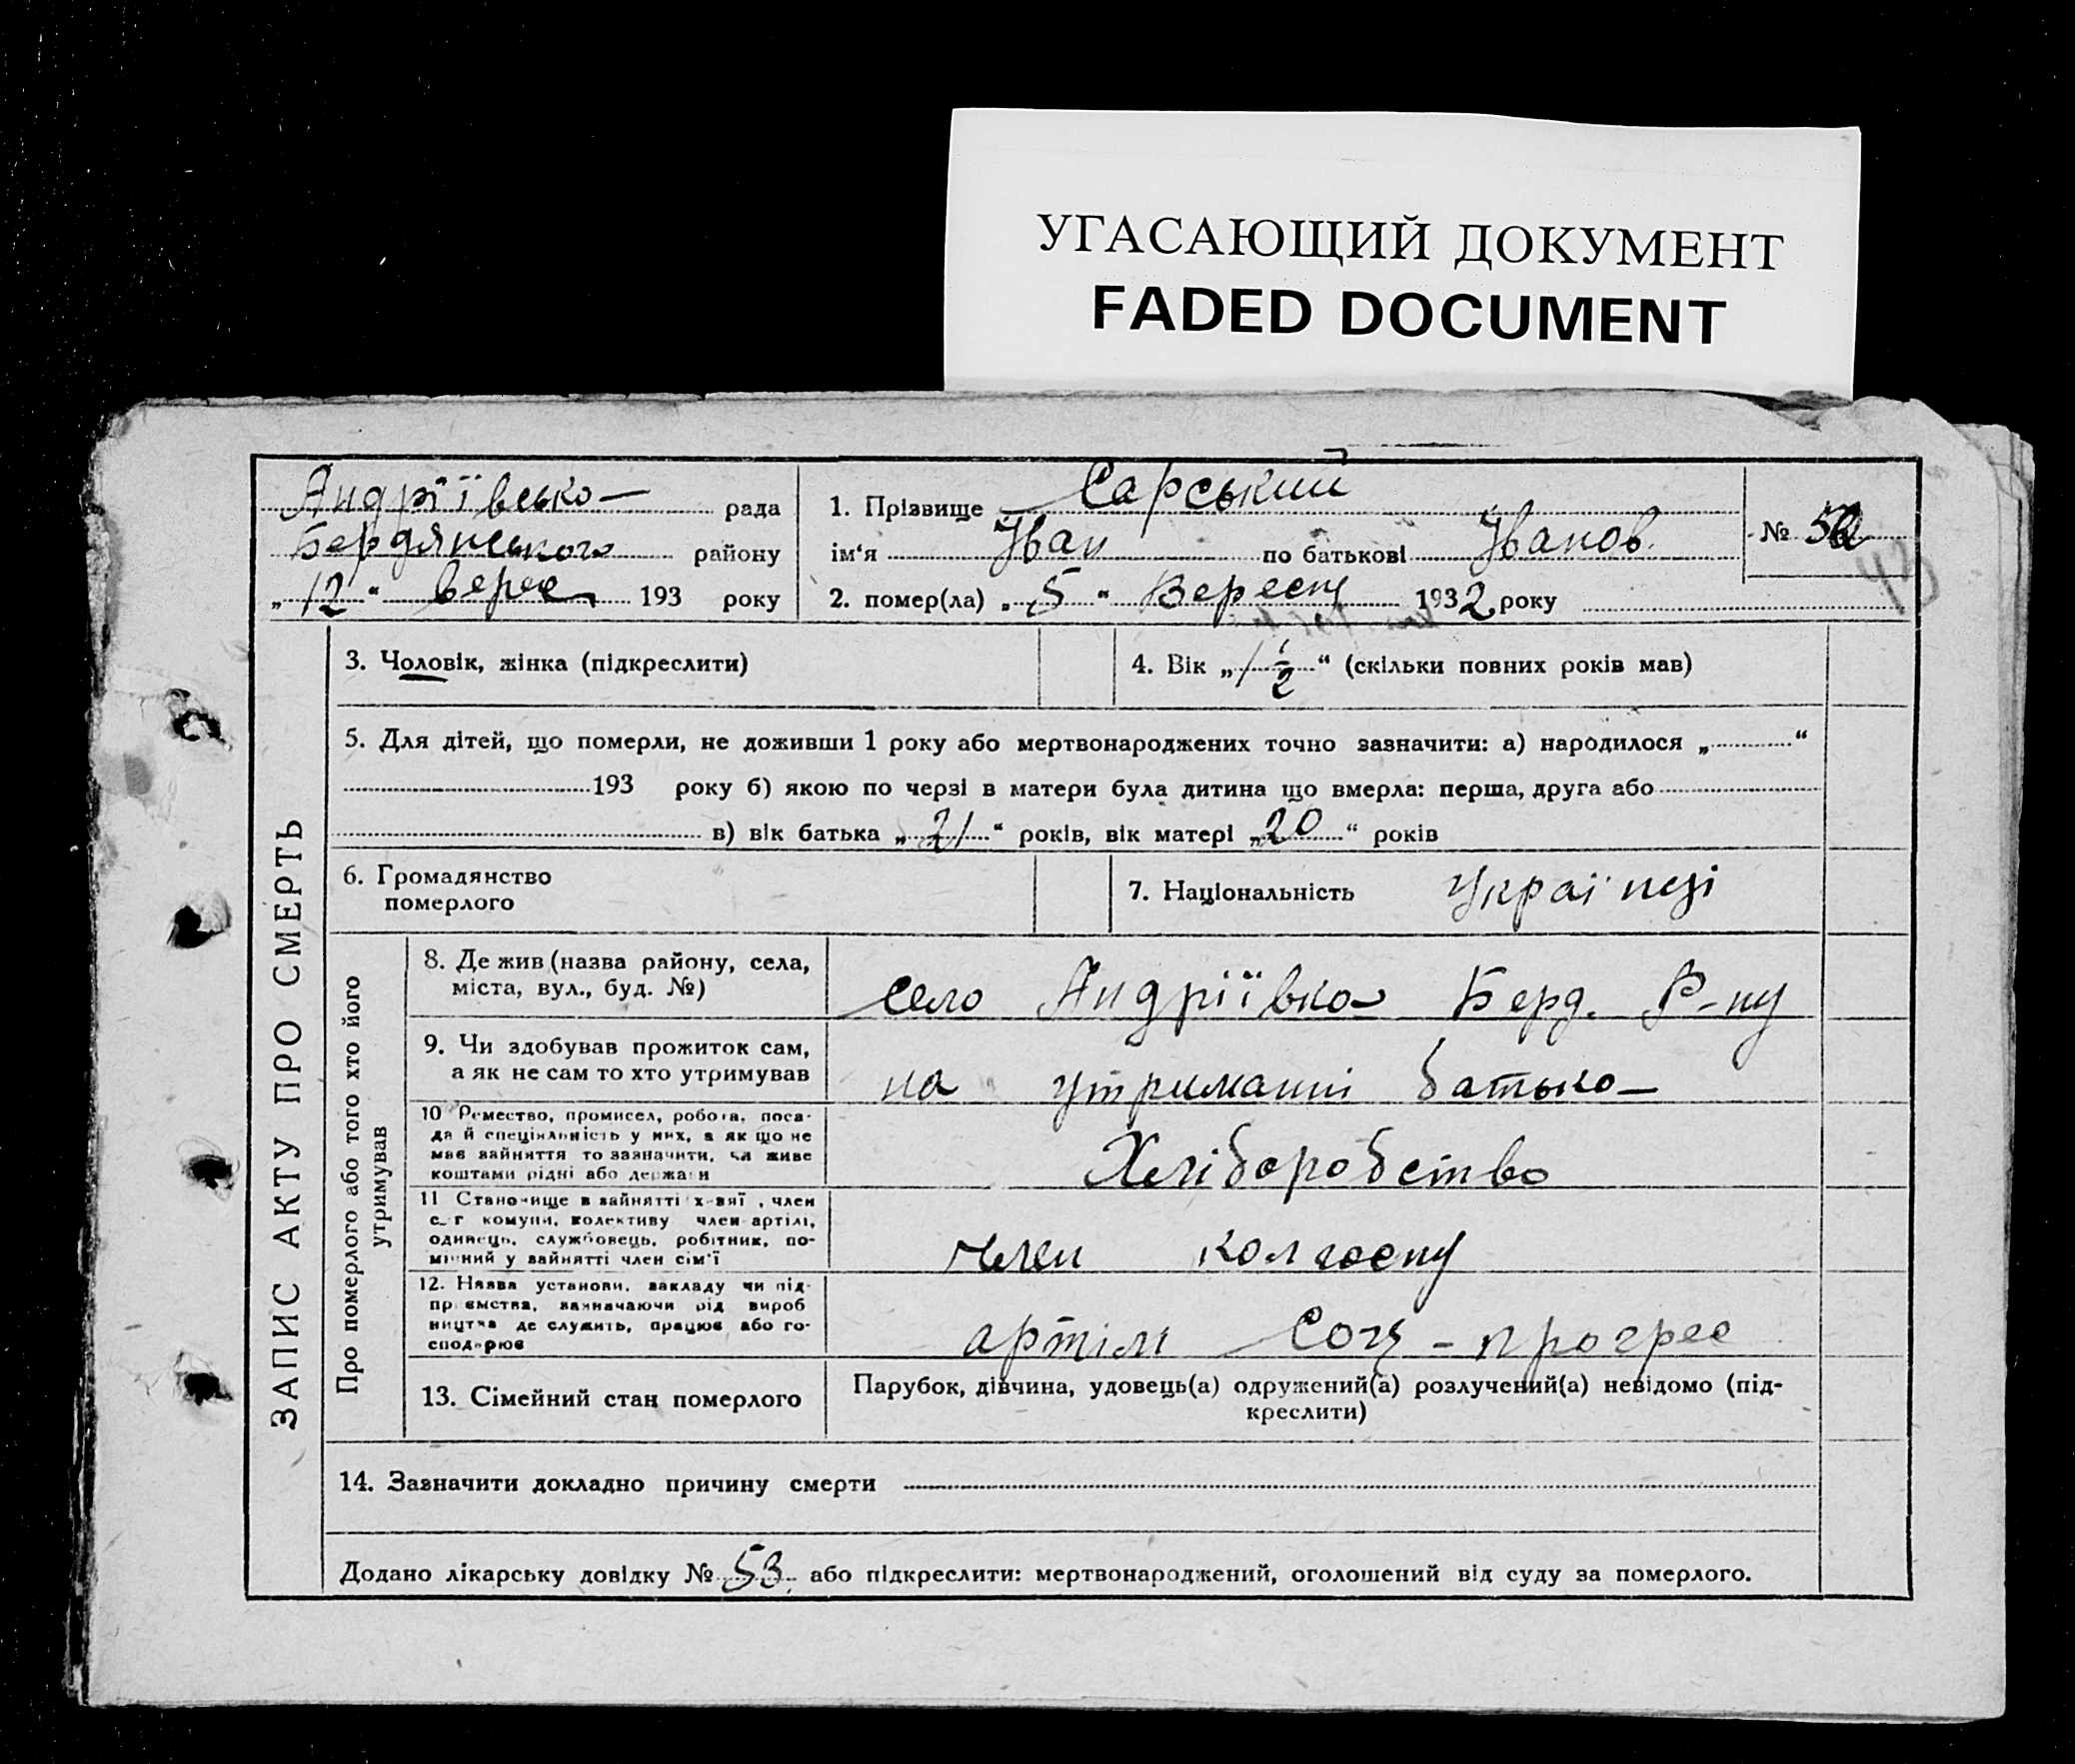 УГАСАЮЩИЙ ДОКУМЕНТ
FADED DOCUMENT
Андріївсько рада
Бердянського району
„12“ верес 193 року
1. Прізвище Сарський
ім‘я Іван по батькові Іванов.
2. помер(ла) „5“ Вересн 1932 року
№ 52
ЗАПИС АКТУ ПРО СМЕРТЬ
3. Чоловік, жінка (підкреслити)
4. Вік „1 1/2“ (скільки повних років мав)
5. Для дітей, що померли, не доживши 1 року або мертвонароджених точно зазначити: а) народилося „ “
193 року б) якою по черзі в матери була дитина що вмерла: перша, друга або
в) вік батька „21“ років, вік матері „20“ років
6. Громадянство
померлого
7. Національність Українці
Про померлого або того хто його
утримував
8. Де жив (назва району, села,
міста, вул., буд. №)
село Андріївка Берд. Р-ну
9. Чи здобував прожиток сам,
а як не сам то хто утримував
на утриманні батько
10 Ремество, промисел, робота, поса-
да й спеціяльність у них, а як що не
має зайняття то зазначити, чи живе
коштами рідні або держави
Хліборобство
11 Становище в зайнятті , член
с.-г комуни, колективу член артілі,
одинець, службовець, робітник, по-
мічний у зайнятті член сім'ї
член колгоспу
12. Назва установи, закладу чи під-
приємства, зазначаючи рід вироб
ництва де служить, працює або го-
сподарює
артіли Соц-прогрес
13. Сімейний стан померлого
Парубок, дівчина, удовець(а) одружений(а) розлучений(а) невідомо (під-
креслити)
14. Зазначити докладно причину смерти
Додано лікарську довідку № 53 або підкреслити: мертвонароджений, оголошений від суду за померлого.